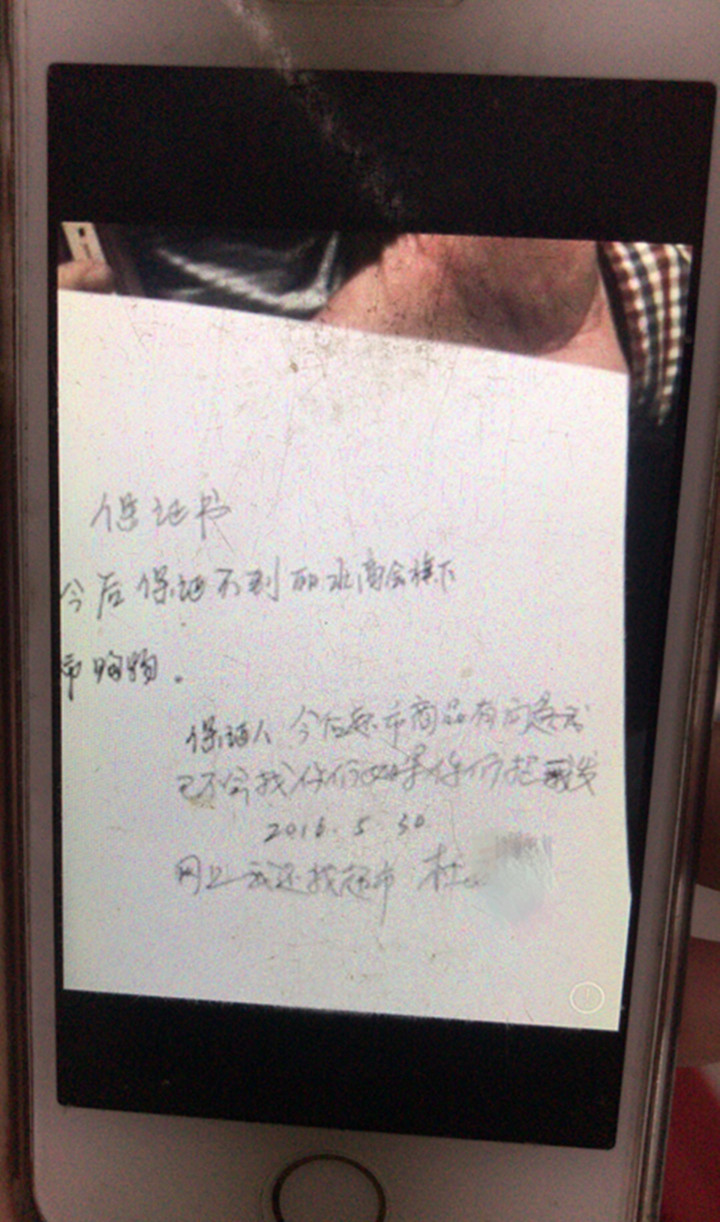 保证书
今后保证不到丽水商会旗下
市购物。
保证人 今后超市商品有问题我
已不会找你们如果你们把 发
2016.5.30
网上我还找超市 杜